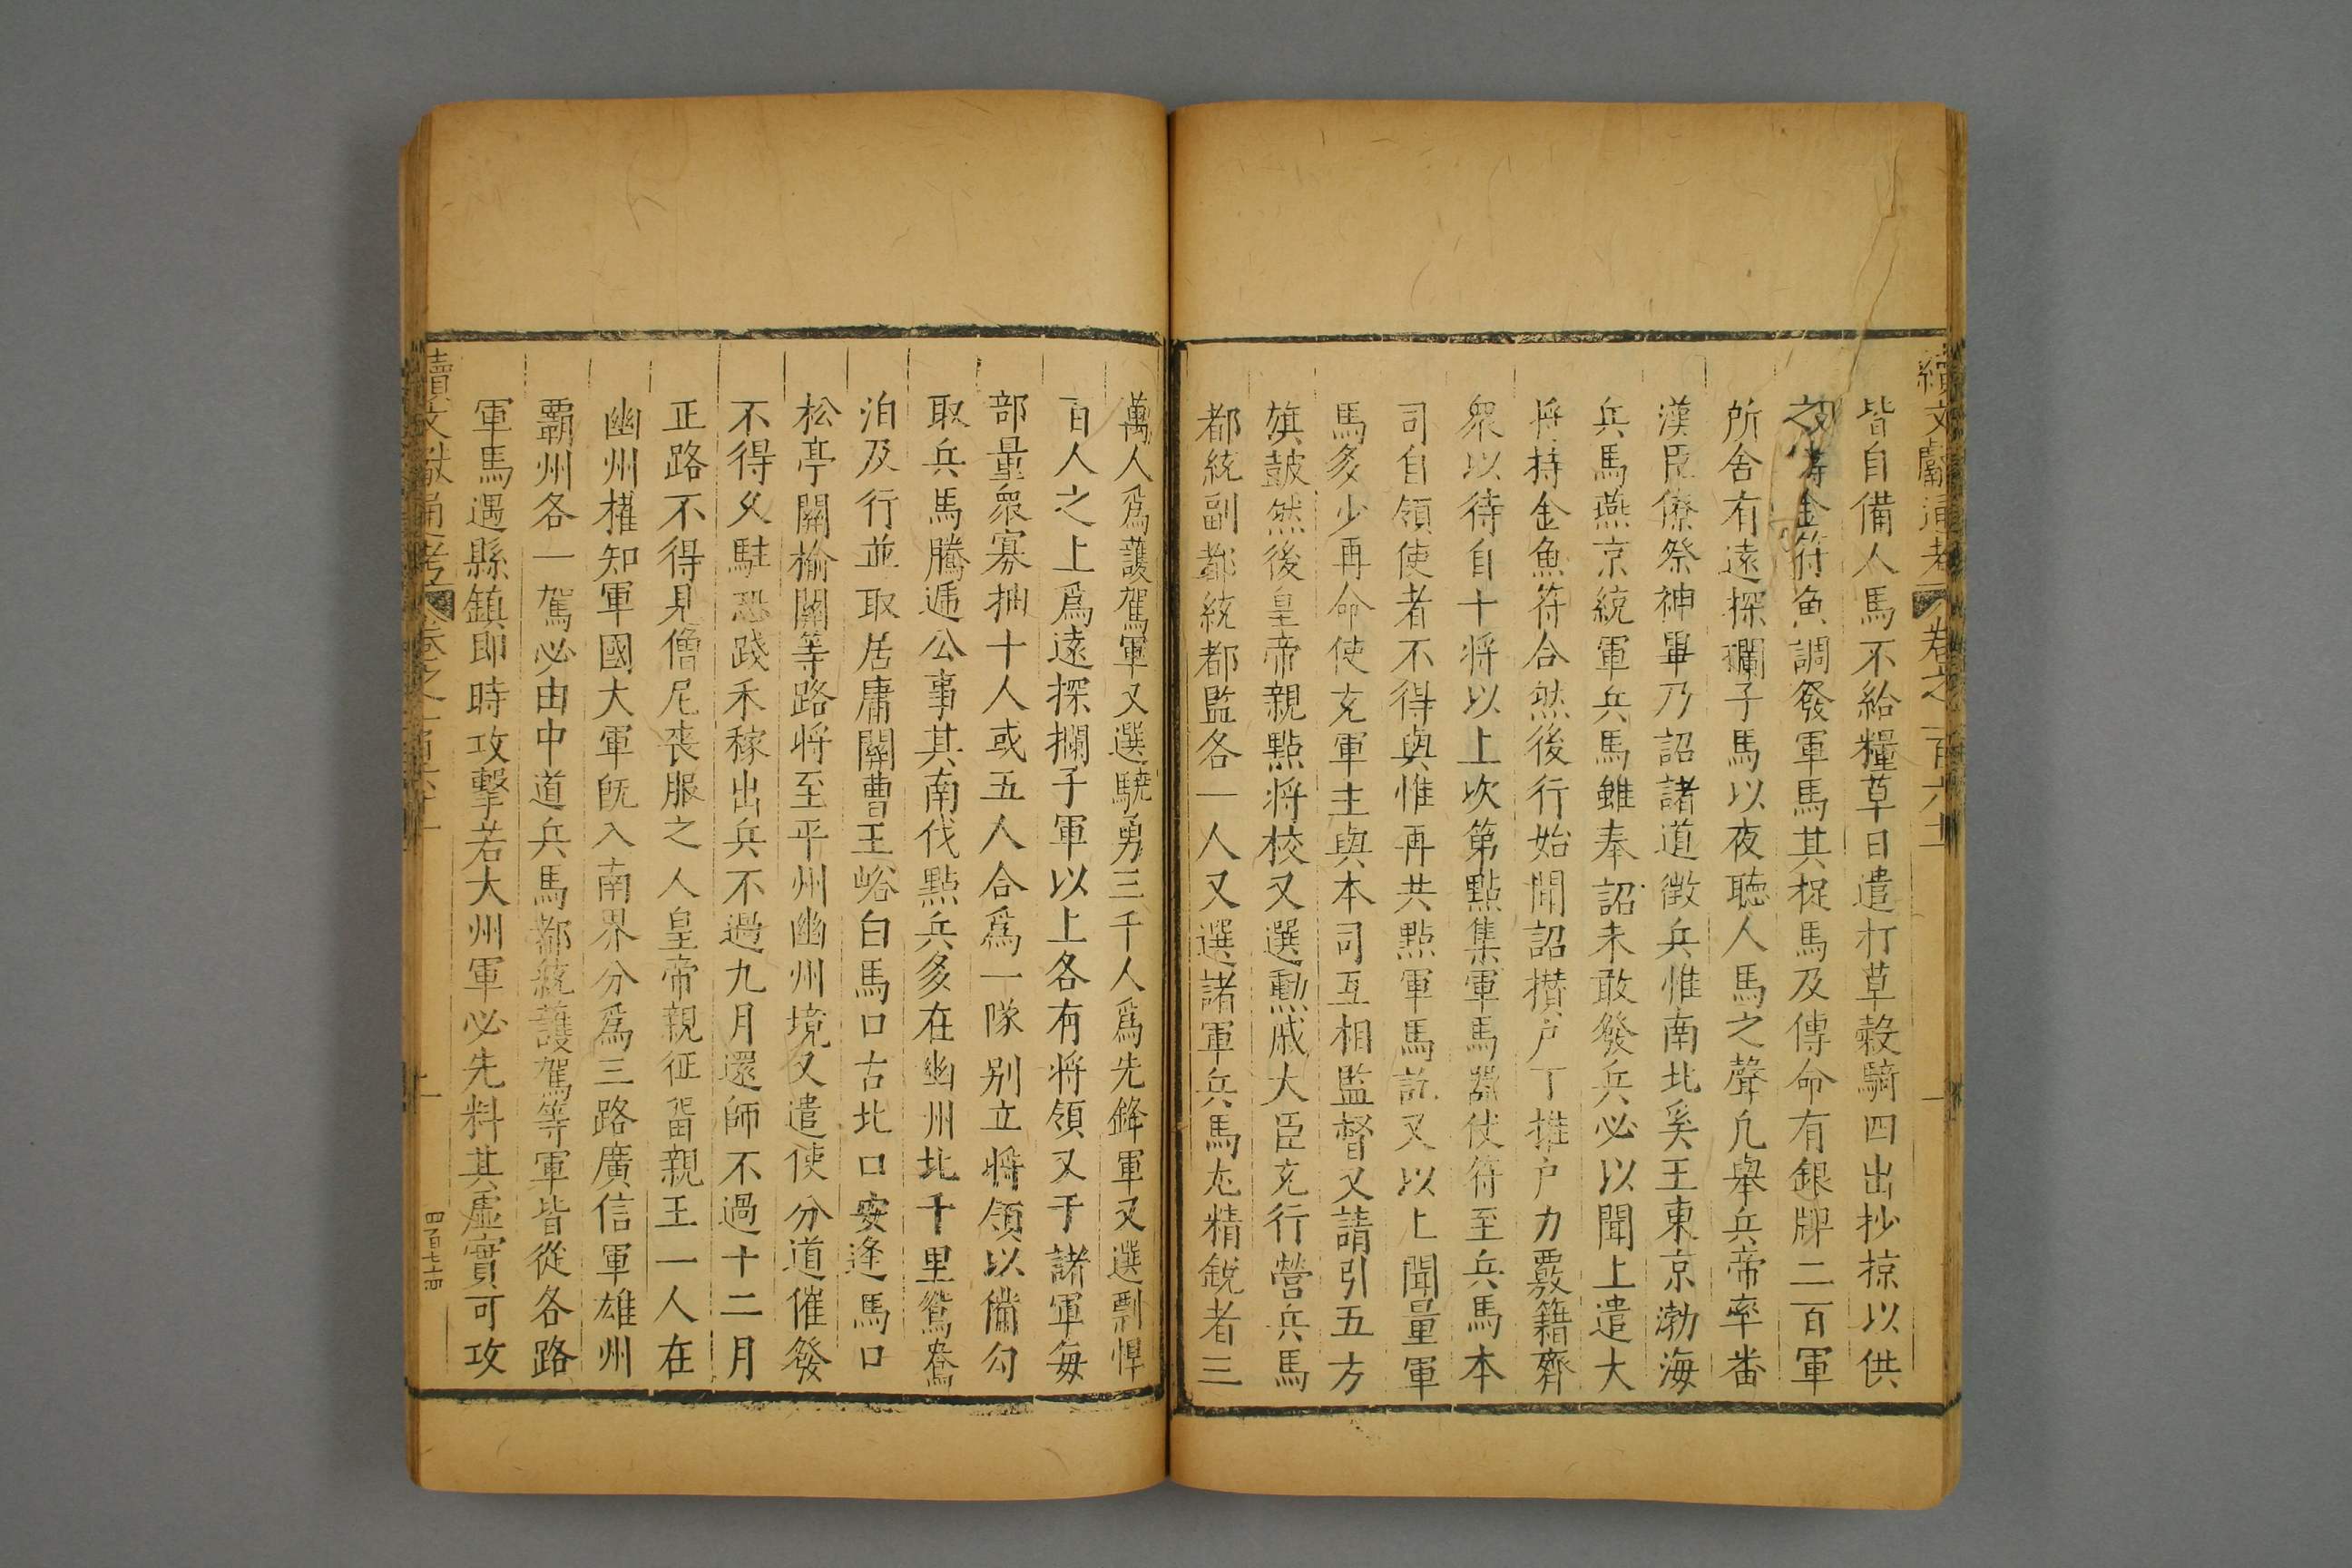 續文獻通考 卷之一百六十
皆自備人馬不給糧草日遣打草穀騎四出抄掠以供
之 金符魚調發軍馬其捉馬及傳命有銀牌二百軍
所舍有遠探攔子馬以夜聽人馬之聲凡舉兵帝率番
漢臣僚祭神畢乃詔諸道徵兵惟南北奚王東京渤海
兵馬燕京統軍兵馬雖奉詔未敢發兵必以聞上遣大
將持金魚符合然後行始聞詔攢户丁推户力覈籍齊
衆以待自十將以上次第點集軍馬器仗符至兵馬本
司自領使者不得與惟再共點軍馬訖又以上聞量軍
馬多少再命使充軍主與本司互相監督又請引五方
旗鼓然後皇帝親點将校又選勳戚大臣充行營兵馬
都統副都統都監各一人又選諸軍兵馬尤精銳者三
萬人爲護駕軍又選驍勇三千人爲先鋒軍又選剽悍
百人之上爲遠探攔子軍以上各有将領又于諸軍每
部量衆寡抽十人或五人合爲一隊别立將領以備勾
取兵馬騰逓公事其南伐點兵多在幽州北千里鴛鴦
泊及行並取居庸關曹王峪白馬口古北口安逹馬口
松亭關榆關等路将至平州幽州境又遣使分道催發
不得久駐恐踐禾稼出兵不過九月還師不過十二月
正路不得見僧尼喪服之人皇帝親征留親王一人在
幽州權知軍國大軍旣入南界分爲三路廣信軍雄州
霸州各一駕必由中道兵馬都統護駕等軍皆從各路
軍馬遇縣鎮即時攻擊若大州軍必先料其虛實可攻
續文獻通考 卷之一百六十
四百七十四